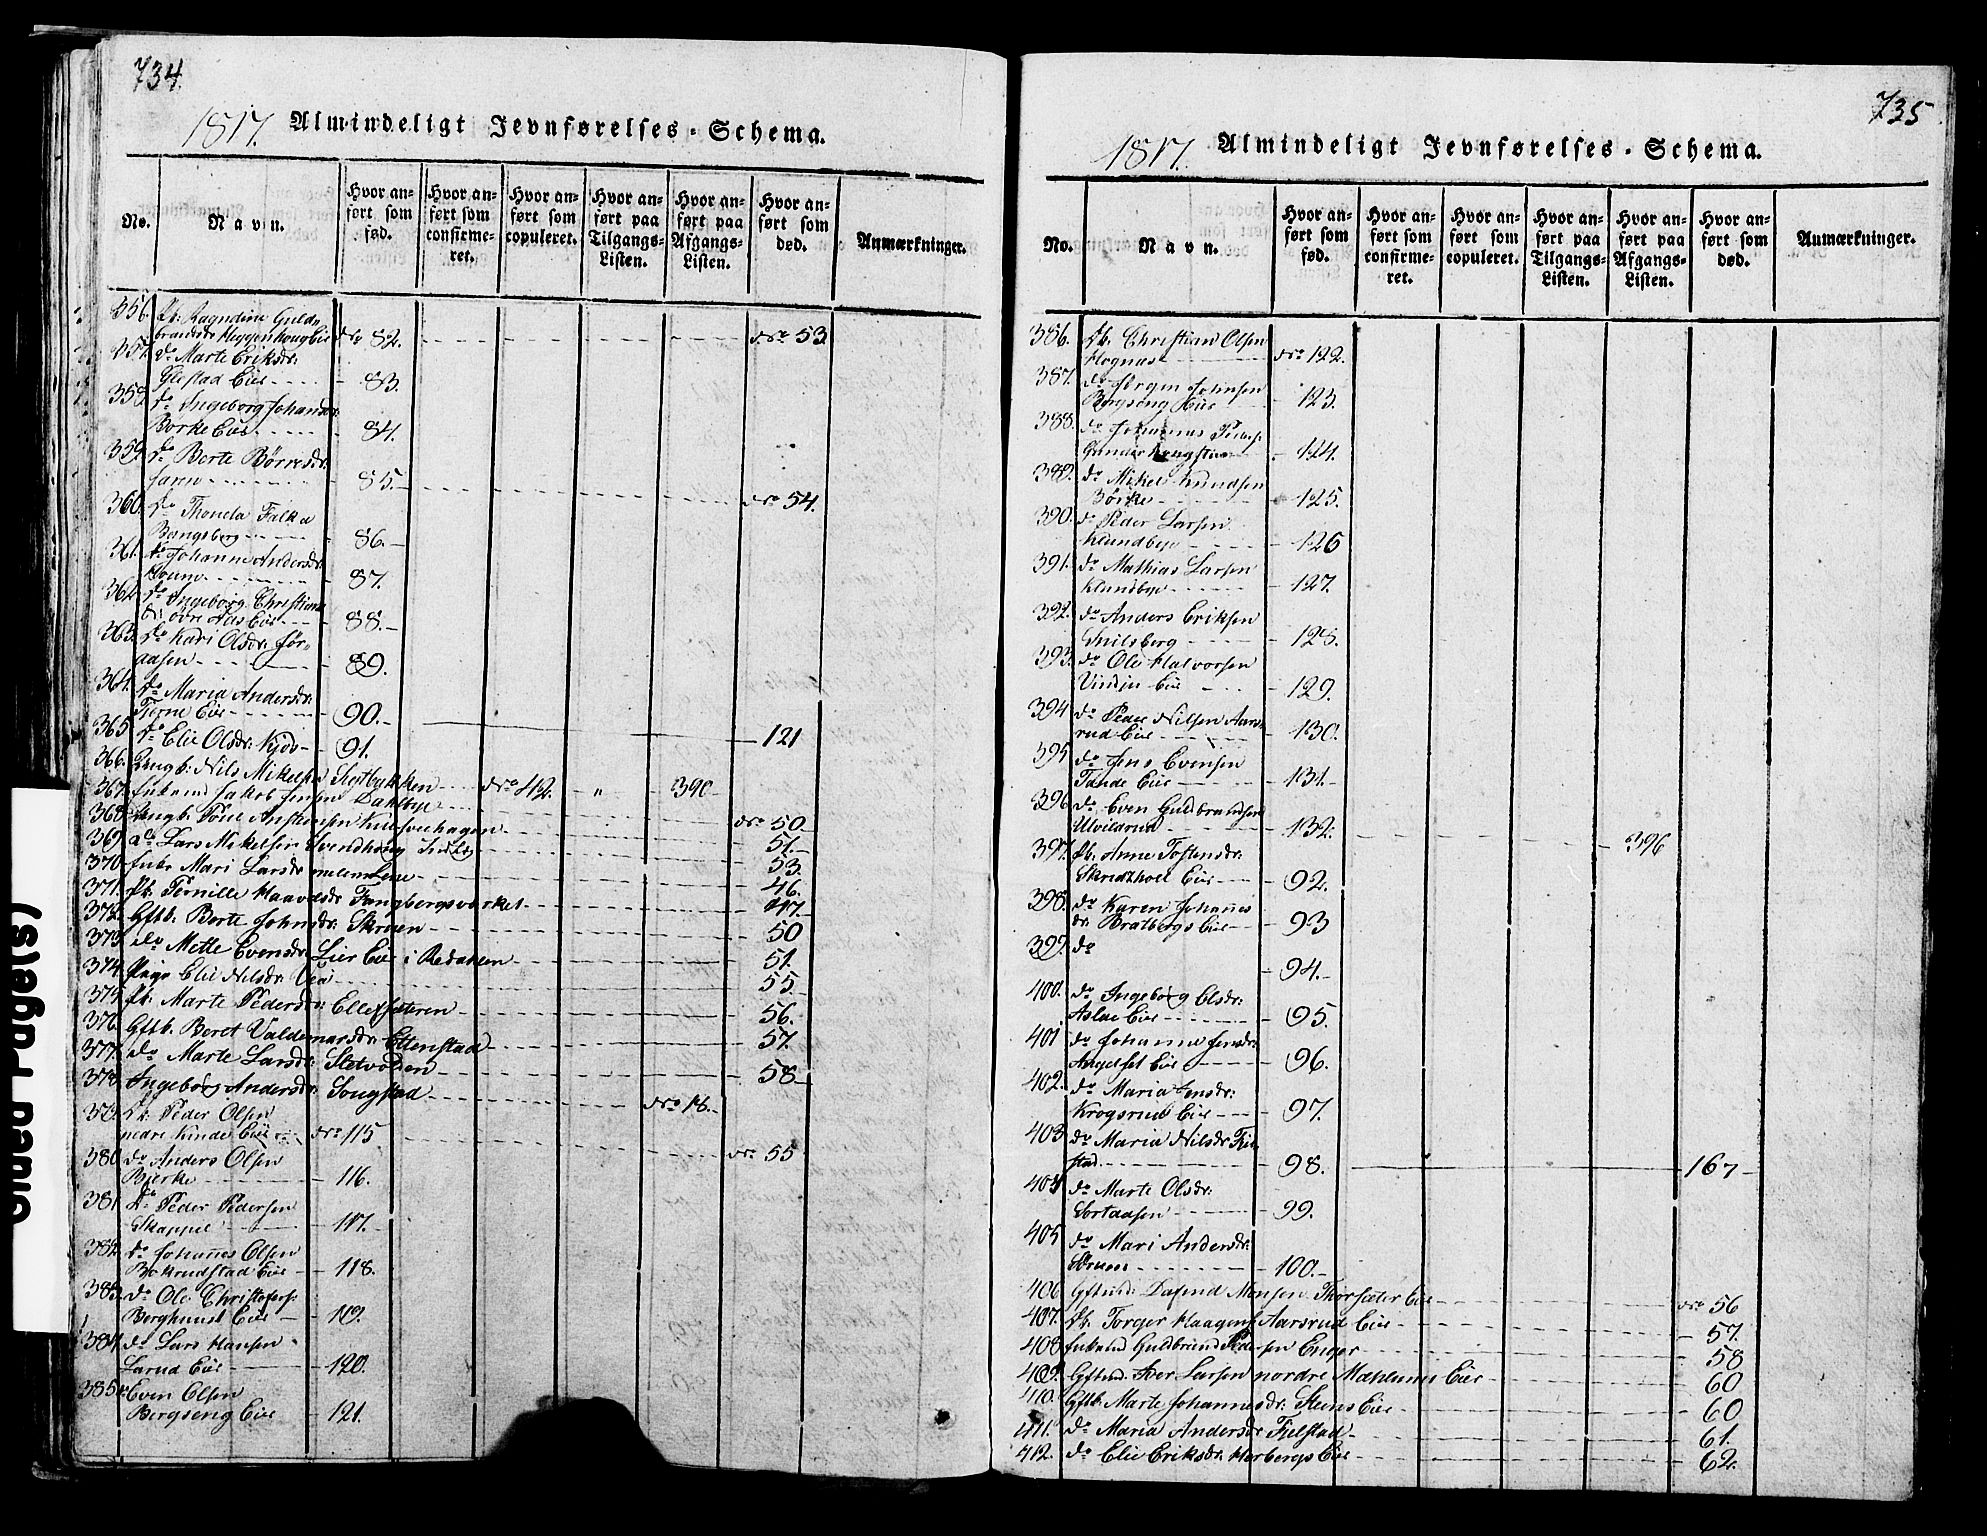 734.
1817. Almindeligt Jevnførelses-Schema.
No. Navn. Hvor anført som fød. Hvor anført som confirmeret. Hvor anført som copuleret. Hvor anført paa Tilgangs-Listen. Hvor anført paa Afgangs-Listen. Hvor anført som død. Anmærkninger.
356. Pb: Ragndine Guld-
brandsdr Heggenhoug Eie No 82. No 53
357. do Marte Eriksdr:
Glestad Eie 83.
358. do Ingeborg Johansdr:
Borke Eie 84.
359. do Berte Børresdr:
85. No 54.
360. do Thonela Falk a
Bangsberg 86.
361. do Johanne Andersdr:
87.
362. do Ingeborg Christians
dr: øvre Aas Eie 88.
363. do Kari Olsdr:
aasen 89.
364. do Maria Andersdr:
Tierne Eie 90. 121
365. do Elie Olsdr: 91.
366. Ungb: Nils Mikelsen No 42. " 390
367. Enkmd Jakob Jensen Dahlbye No 50
368. Ungk. 51.
369. do Lars Mikelsen 53.
370. Enke Mari Larsdr 46.
371. Pb: Pernille Haavelsdr Fangbergsverket 47.
372. Gftk. Berte Johnsdr: Skruen 50
373. do Mette Evensdr: Lier Eie i Redahlen 51.
374. Pige Elie Nilsdr: 55
375. Pb: Marte Pedersdr: Ellefsæteren 56.
376. Gftk. Beret Valdemarsdr: Ettenstad 57.
377. do Marte Larsdr: Sletvolden 58
378. Ingeborg Andersdr: Songstad No 18.
379. Pb: Peder Olsen
nedre Kinde Eie No 115 No 55
380. do Anders Olsen
Bierke 116.
381. do Peder Pedersen
Skappel 117.
382. do Johannes Olsen
Bokrudstad Eie 118.
383. do Ole Christofers:
Berghuust Eie 119.
384. do Lars Hansen
Larud Eie 120.
385. Even Olsen
Bergseng Eie 121.
735
1817. Almindeligt Jevnførelses-Schema.
No. Navn. Hvor anført som fød. Hvor anført som confirmeret. Hvor anført som copuleret. Hvor anført paa Tilgangs-Listen. Hvor anført paa Afgangs-Listen. Hvor anført som død. Anmærkninger.
386. Pb. Christian Olsen
Hognæs No 122.
387. do Jørgen Johnsen
Bergseng Eie 123.
388. do Johannes Peders:
124.
389. do Mikel Knudsen
Børke 125.
390. do Peder Larsen
Klundbye 126
391. do Mathias Larsen
Klundbye 127.
392. do Anders Eriksen
Snilsberg 128.
393. do Ole Halvorsen
Vindju Eie 129.
394 do Peder Nilsen Aars-
rud Eie 130.
395 do Jens Evensen
Tande Eie 131.
396 do Even Guldbrandsen
Ulvildrud 132. 396
397. Pb. Anne Tostensdr:
Skrudtholt Eie 92.
398. do Karen Johannes
dr: Bratbergs Eie 93
399. do
94.
400. do Ingeborg Elsdr:
Aslae Eie 95.
401 do Johanne Jensdr:
Angelset Eie 96.
402. do Maria Jensdr:
Krogsrud Eie 97.
403 do Maria Nilsdr Fiel-
stad 98. 167
404 do Marte Olsdr:
Sortaasen 99.
405 do Mari Andersdr:
Skruen 100.
406 Gftmd: Dafind Monsen Thorsæter Eie No 56
407. Pb. Torger Haagens: Aarsrud Eie 57.
408 Enkmd Guldbrand Pedersen Enger 58
409. Gftmd. Iver Larsen nordre Mæhlum Eie 60
410. Gftk. Marte Johannesdr: Steens Eie 60
411. do Maria Andersdr Fielstad 61.
412. do Elie Eriksdr: Herbergs Eie 62.
Qued Page(s)